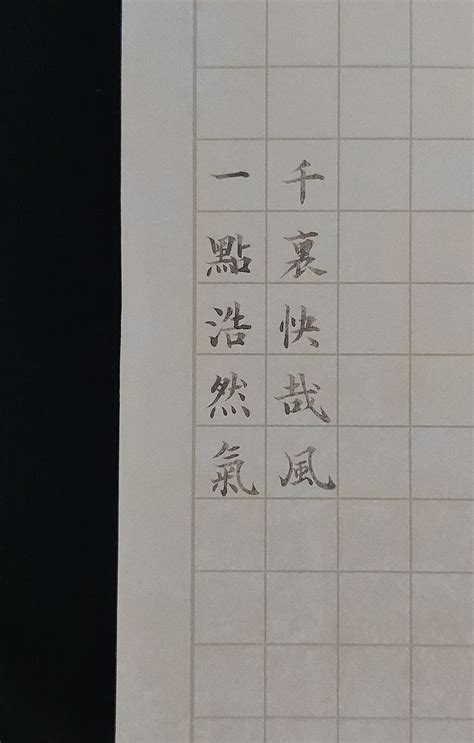 一點浩然氣
千裏快哉風